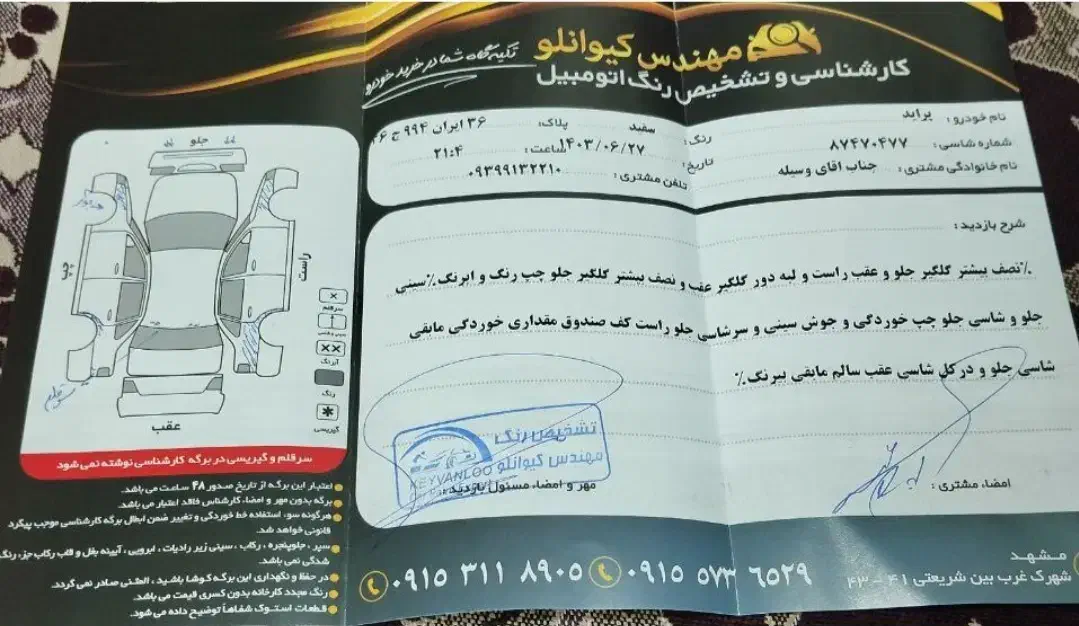 مهندس کیوانلو
کارشناسی و تشخیص رنگ اتومبیل
تکیه گاه شما در خرید خودرو
نام خودرو : پراید
رنگ: سفید
پلاک: ۳۶ ایران ۹۹۴ ج ۲۶
شماره شاسی : ۸۷۴۷۰۴۷۷
تاریخ: ۱۴۰۳/۰۶/۲۷
ساعت: ۲۱:۴
نام خانوادگی مشتری : جناب اقای وسیله
تلفن مشتری: ۰۹۳۹۹۱۳۲۲۱۰
شرح بازدید:
٪نصف بیشتر گلگیر جلو و عقب راست و لبه دور گلگیر عقب و نصف بیشتر گلگیر جلو چپ رنگ و ابرنگ٪سینی
جلو و شاسی جلو چپ خوردگی و جوش سینی و سرشاسی جلو راست کف صندوق مقداری خوردگی مابقی
شاسی جلو و در کل شاسی عقب سالم مابقی بیرنگ٪
تشخیص رنگ
مهندس کیوانلو
KEYVANLOO
مهر و امضاء مسئول بازدید:
امضاء مشتری :
جلو
چپ
راست
عقب
سرقلم
آبرنگ
رنگ
گیریسی
سرقلم و گیریسی در برگه کارشناسی نوشته نمی شود
اعتبار این برگه از تاریخ صدور ۴۸ ساعت می باشد.
برگه بدون مهر و امضاء کارشناس فاقد اعتبار می باشد.
هرگونه سوء استفاده خط خوردگی و تغییر ضمن ابطال برگه کارشناسی موجب پیگرد
قانونی خواهد شد.
سپر ، جلوپنجره ، رکاب ، سینی زیر رادیات ، ابرویی ، آیینه بغل و قلب رکاب جزء رنگ
شدگی نمی باشد.
در حفظ و نگهداری این برگه کوشا باشید ، المثنی صادر نمی گردد.
رنگ مجدد کارخانه بدون کسری قیمت می باشد.
قطعات استوک شفاهاً توضیح داده می شود.
۰۹۱۵ ۳۱۱ ۸۹۰۵
۰۹۱۵ ۵۷۳ ۶۵۲۹
مشهد
شهرک غرب بین شریعتی ۴۱ - ۴۳